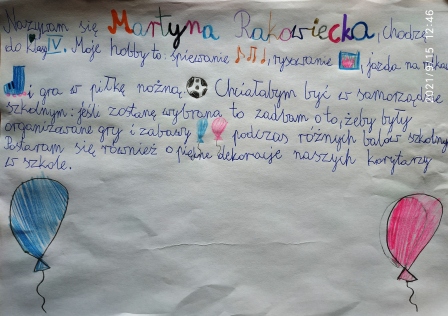 Nazywam się Martyna Rakowiecka, chodzę
do klasy IV. Moje hobby to: śpiewanie, rysowanie, jazda na
i gra w piłkę nożną. Chciałabym być w samorządzie
szkolnym: jeśli zostanę wybrana to zadbam o to, żeby były
organizowane gry i zabawy podczas różnych balów szkolnych
Postaram się również o piękne dekoracje naszych korytarzy
w szkole.
2021/5/15 12:46